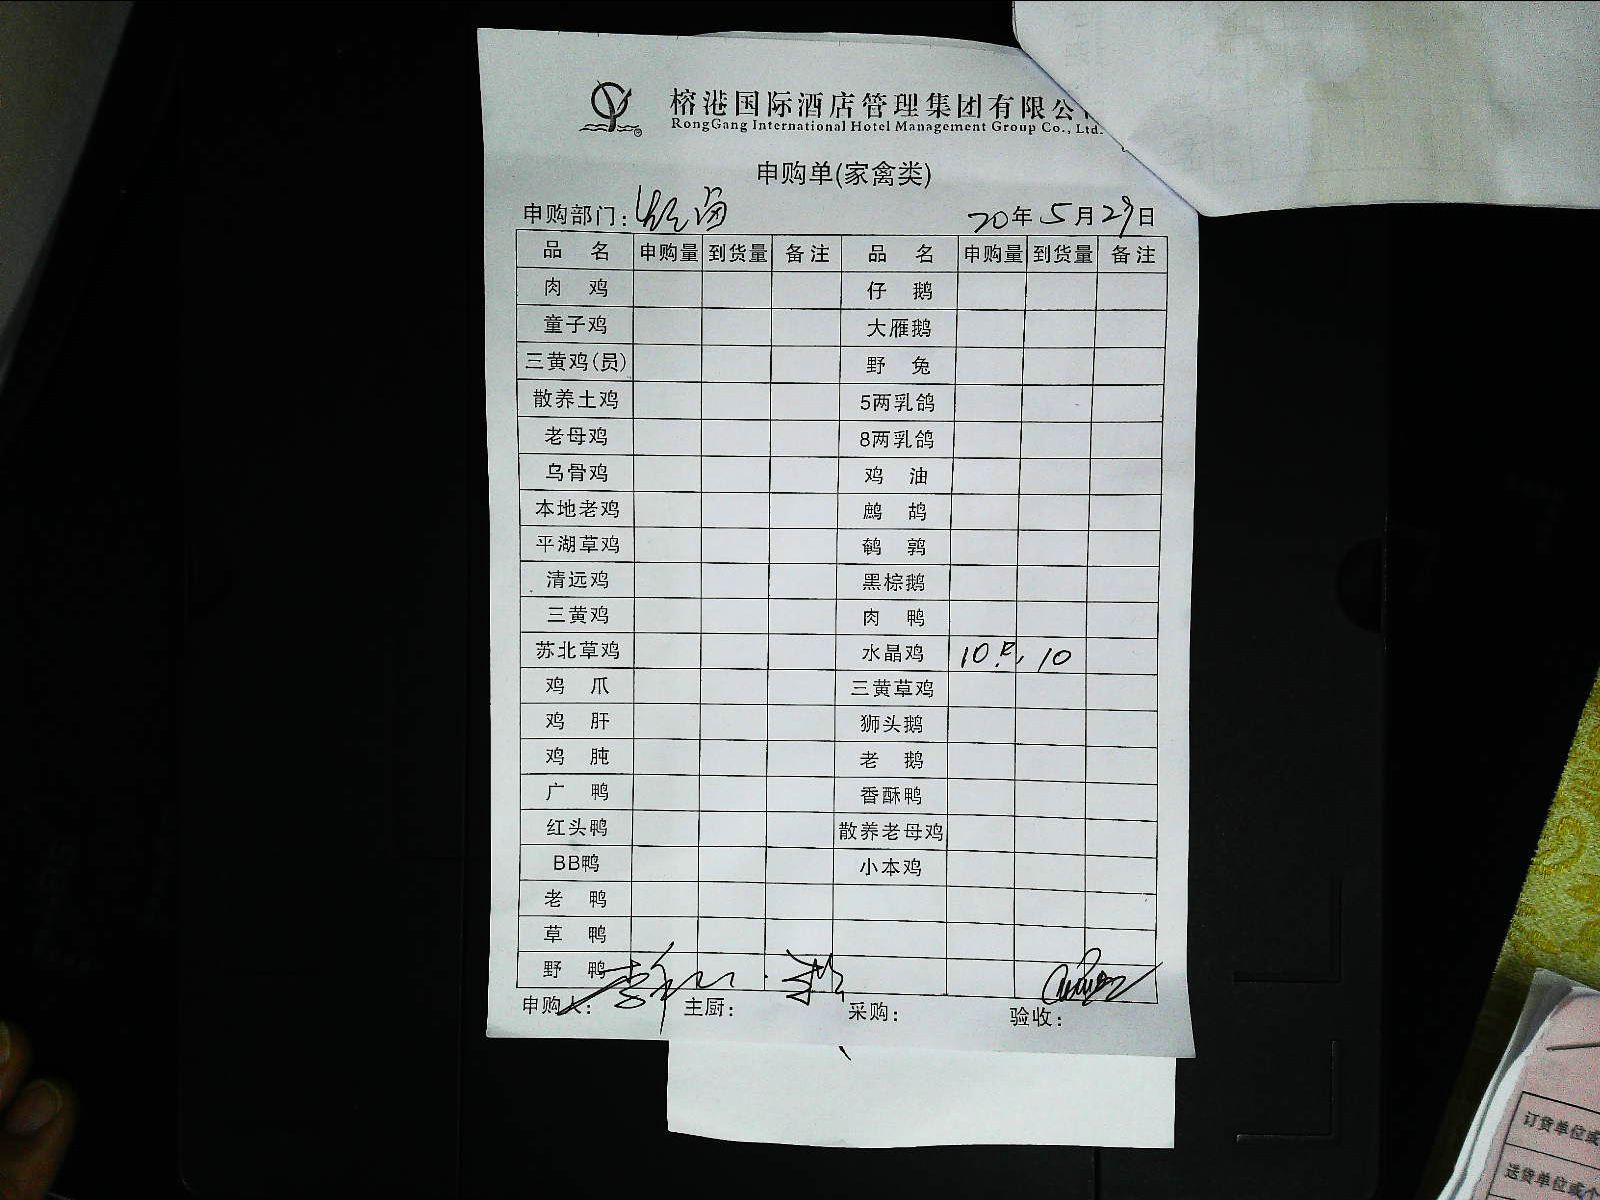 榕港国际酒店管理集团有限公
RongGang International Hotel Management Group Co., Ltd.
申购单(家禽类)
申购部门: 20年5月29日
品 名 申购量 到货量 备注 品 名 申购量 到货量 备注
肉 鸡 仔 鹅
童子鸡 大雁鹅
三黄鸡(员) 野 兔
散养土鸡 5两乳鸽
老母鸡 8两乳鸽
乌骨鸡 鸡 油
本地老鸡 鹧 鸪
平湖草鸡 鹌 鹑
清远鸡 黑棕鹅
三黄鸡 肉 鸭
苏北草鸡 水晶鸡 10只 10
鸡 爪 三黄草鸡
鸡 肝 狮头鹅
鸡 肫 老 鹅
广 鸭 香酥鸭
红头鸭 散养老母鸡
BB鸭 小本鸡
老 鸭
草 鸭
野 鸭
申购人: 主厨: 采购: 验收:
订货单位或
送货单位或个